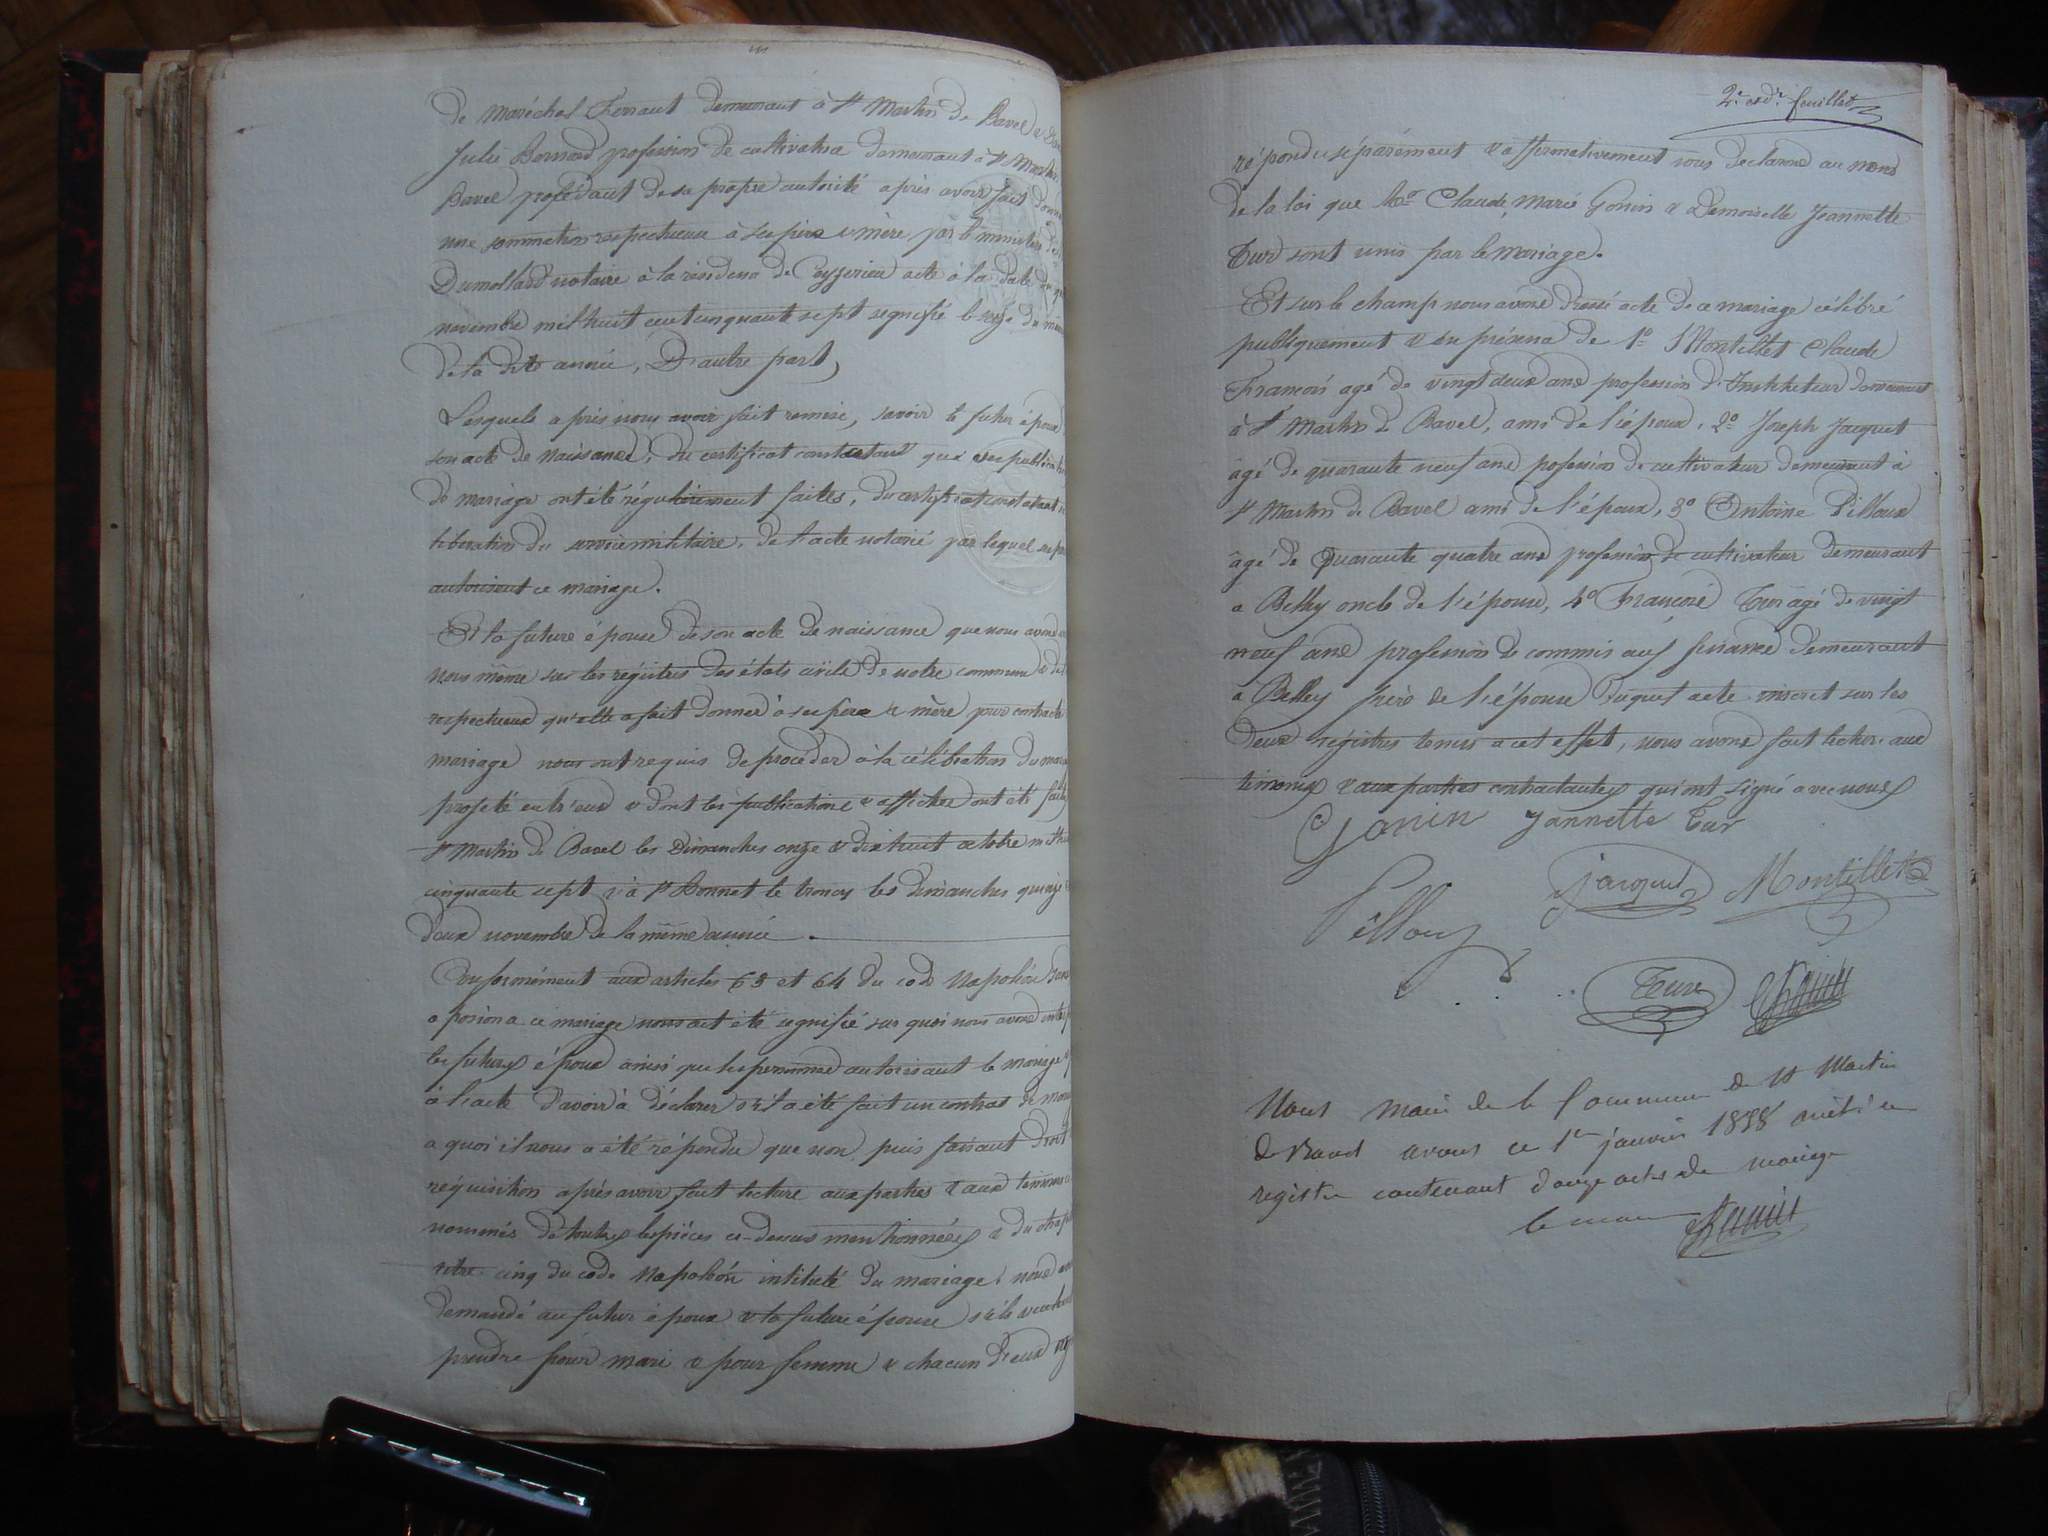 de Maréchal Ferraut demeurant à St Martin de Bavel &
Julie Bornard profession de cultivatrice demeurant à St Martin
Bavel procédant de sa propre autorité après avoir fait donner
une sommation respectueuse à ses père & mère, par le ministère de
Dumollard notaire à la résidence de Ceyzerieu acte à la date du
novembre mil huit cent cinquante sept signifié le seize du même
de la dite année, D'autre part,
Lesquels après nous avoir fait remise, savoir le futur époux
son acte de naissance, du certificat constatant que les publications
de mariage ont été régulièrement faites, du certificat constatant sa
libération du service militaire, de l'acte notarié par lequel
autorisent ce mariage.
Et la future épouse de son acte de naissance que nous avons
nous même sur les régistres des états civils de notre commune & de
respectueux qu'elle a fait donner à ses père & mère pour contracter
mariage nous ont requis de procéder à la célébration du mariage
projeté entr'eux & dont les publications & affiches ont été faites
St Martin de Bavel les Dimanches onze & dix huit octobre mil huit
cinquante sept & à St Bonnet le troncy les Dimanches quinze &
deux novembre de la même année.
Conformément aux articles 63 et 64 du code Napoléon
oposion a ce mariage nous ait été signifié sur quoi nous avons
les futurs époux ainsi que les personnes autorisant le mariage
à l'acte d'avoir à déclarer s'il a été fait un contrat de mariage
a quoi il nous a été répondu que non, puis faisant droit
réquisition après avoir fait lecture aux parties & aux témoins
nommés de toutes les pièces ci-dessus mentionnées & du chapitre
titre cinq du code Napoléon intitulé du mariage, nous avons
demandé au futur époux & la future épouse s'ils veulent
prendre pour mari & pour femme & chacun d'eux
2e & dr feuillet
répondu séparément & affirmativement nous déclarons au nom
de la loi que Mr Claude, Marie Gonin & Demoiselle Jeannette
Tur sont unis par le mariage.
Et sur le champ nous avons dressé acte de ce mariage célébré
publiquement & en présence de 1o Montillet Claude
François agé de vingt deux ans profession d'Instituteur demeurant
à St Martin de Bavel, ami de l'époux, 2o Joseph Jacquet
âgé de quarante neuf ans profession de cultivateur demeurant à
St Martin de Bavel ami de l'époux, 3o Antoine Pilloux
âgé de quarante quatre ans profession de cultivateur demeurant
a Belley oncle de l'épouse, 4o François Tur agé de vingt
neuf ans profession de commis aux finances demeurant
a Belley frère de l'épouse Duquel acte inscrit sur les
deux régistres tenus a cet effet, nous avons fait lecture aux
témoins & aux parties contractantes qui ont signé avec nous
Gonin Jannette Tur
Pilloux Jacquet Montillet
Tur
Nous maire de la Commune de St Martin
de Bavel avons ce 1er janvier 1858 arrêté ce
registre contenant douze actes de mariage
le maire